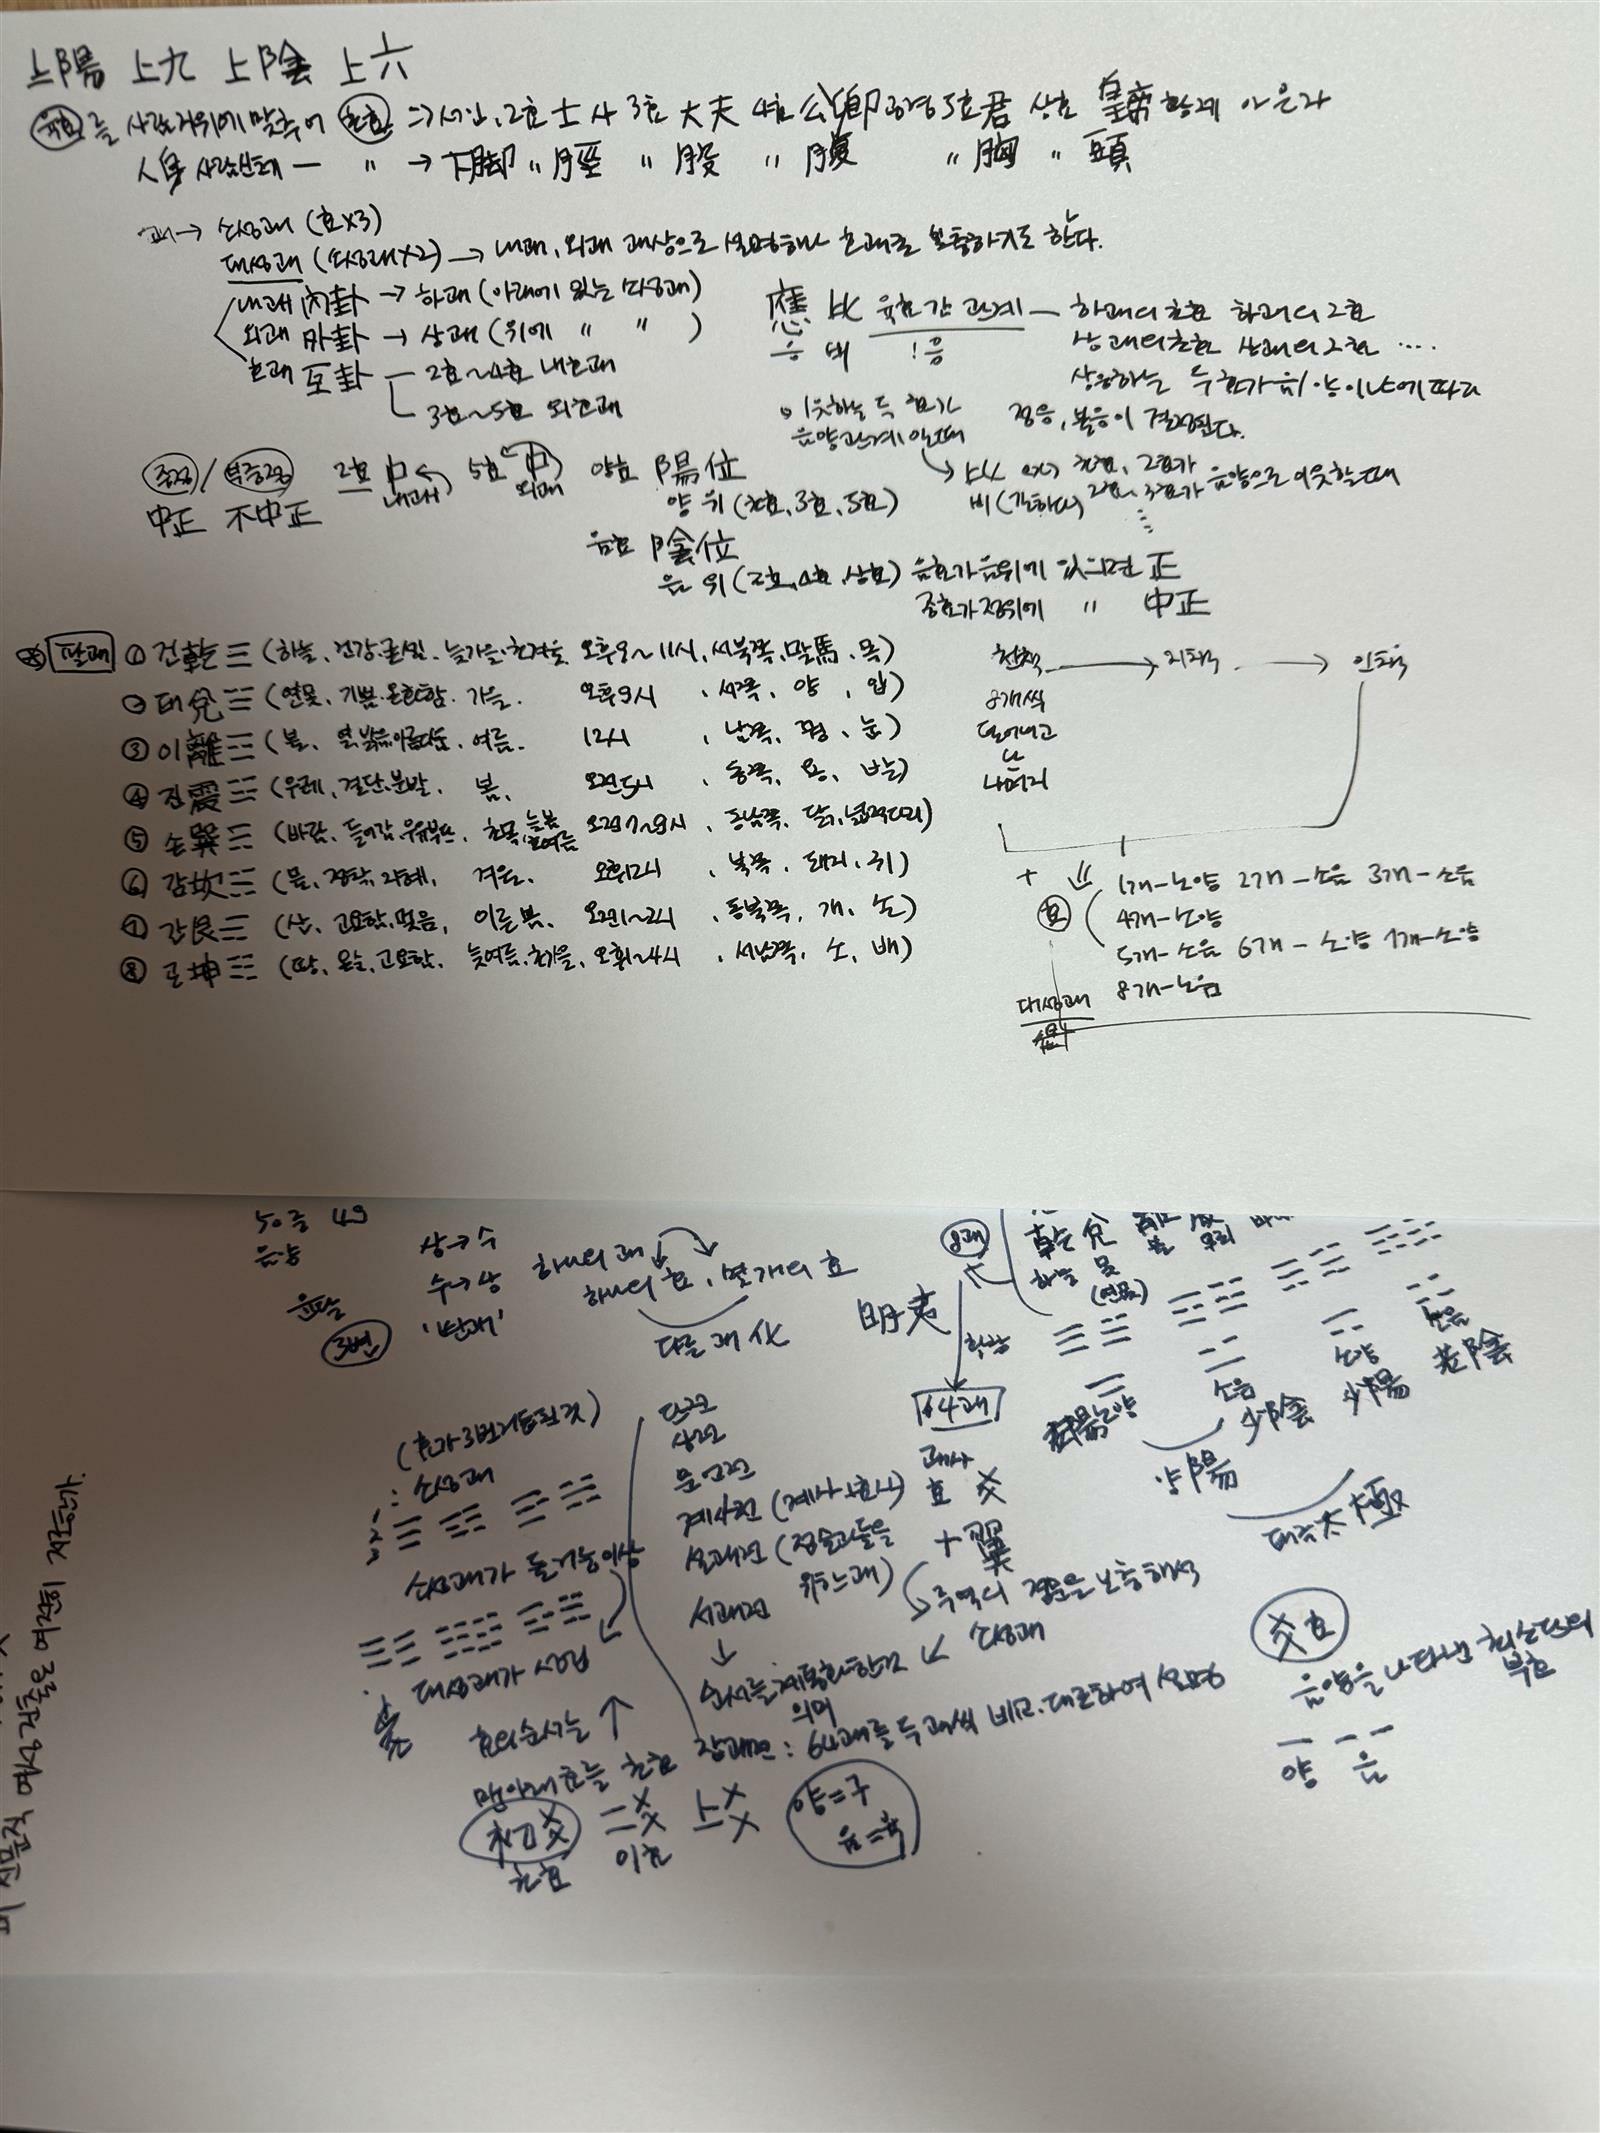 上陽 上九 上陰 上六
육효를 사람 지위에 맞추어 초효 => 서인, 2효 士 사 3효 大夫 4효 公卿 공경 5효 君 상효 皇帝 황제
人身 사람신체 — 〃 → 下脚 〃 脛 〃 股 〃 腹 〃 胸 〃 頭
괘 → 소성괘 (효×3)
대성괘 (소성괘×2) → 내괘, 외괘 괘상으로 설명하나 호괘로 보충하기도 한다.
내괘 內卦 → 하괘 (아래에 있는 소성괘)
외괘 外卦 → 상괘 (위에 〃 〃 )
호괘 互卦 — 2효~4효 내호괘
3효~5효 외호괘
應 比 육효간 관계 — 하괘의 초효 하괘의 2효
응 비 ! 응 상괘의 초효 상괘의 2효 ....
상응하는 두 효가 음이냐에 따라
정응, 불응이 결정된다.
이웃하는 두 효가
음양관계일때
比 ex) 초효, 2효가 음양으로 이웃할때
비 (친하다) 2효, 3효가
중정 / 부중정 2효 中 내괘 5효 中 외괘 양효 陽位
中正 不中正 양위 (초효, 3효, 5효)
음효 陰位
음위 (2효, 4효, 상효) 음효가 음위에 있으면 正
중효가 정위에 〃 中正
팔괘 ① 건乾☰ (하늘, 건강, 늦가을·초겨울, 오후9~11시, 서북쪽, 말馬, 목)
② 태兌☱ (연못, 기쁨·온화함, 가을, 오후9시, 서쪽, 양, 입)
③ 이離☲ (불, 여름, 12시, 남쪽, 꿩, 눈)
④ 진震☳ (우레, 결단·분발, 봄, 오전5시, 동쪽, 용, 발)
⑤ 손巽☴ (바람, 들어감, 우유부단, 초목, 늦봄 초여름 오전7~9시, 동남쪽, 닭, 넓적다리)
⑥ 감坎☵ (물, 지혜, 겨울, 오후12시, 북쪽, 돼지, 귀)
⑦ 간艮☶ (산, 고요함, 멎음, 이른봄, 오전1~2시, 동북쪽, 개, 손)
⑧ 곤坤☷ (땅, 온순, 고요함, 늦여름, 초가을, 오후1~4시, 서남쪽, 소, 배)
천책 → 지책 → 인책
8개씩
덜어내고
난
나머지
+
효 1개-노양 2개-소음 3개-소음
4개-노양
5개-소음 6개-소양 7개-소양
8개-노음
대성괘
50중 49
음양
상→수
수→상
3변 '반대'
하나의 괘
하나의 효, 몇개의 효
다른 괘 化
明夷
8괘
확장
64괘
乾 兌
하늘 못
(연못)
노양
소음 少陰
소양 少陽
노음 老陰
양陽
태극太極
(효가 3번 거듭된 것)
: 소성괘
1
2
3
소성괘가 둘 거듭이상
대성괘가 성립
효의순서는 ↑
맨아래 효를 초효
初爻 二爻 上爻
초효 이효
양=구
음=육
단전
상전
문언전
계사전 (계사·효사)
설괘전 (점술과들을
서괘전
순서를 계통화한것
의미
잡괘전 : 64괘를 두 괘씩 비교·대조하여 설명
괘사
효 爻
+ 翼
주역의 경문을 보충해석
소성괘
爻효
음양을 나타낸 최소단위
부호
— – –
양 음
여성건축을 여전히